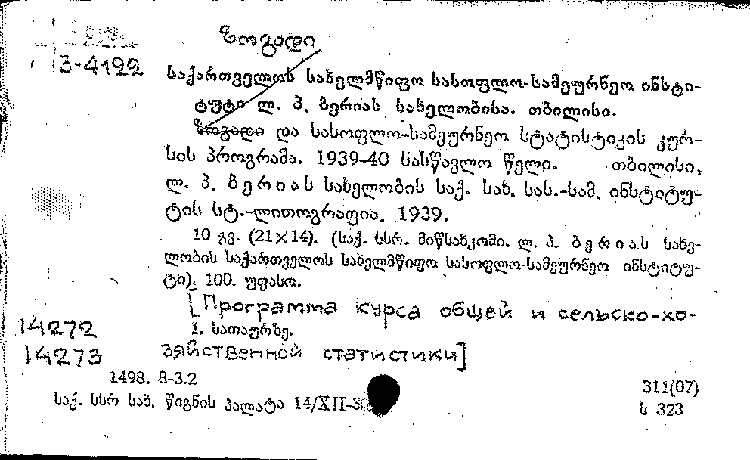 ზოგადი
3-4122
საქართველოს სახელმწიფო სასოფლო-სამეურნეო ინსტი-
ტუტი ლ. პ. ბერიას სახელობისა. თბილისი.
ზოგადი და სასოფლო-სამეურნეო სტატისტიკის კურ-
სის პროგრამა. 1939-40 სასწავლო წელი. თბილისი,
ლ. პ. ბერიას სახელობის საქ. სახ. სას.-სამ. ინსტიტუ-
ტის სტ.-ლითოგრაფია. 1939.
10 გვ. (21×14). (საქ. სსრ. მიწსახკომი. ლ. პ. ბერიას სახე-
ლობის საქართველოს სახელმწიფო სასოფლო-სამეურნეო ინსტიტუ-
ტი). 100. უფასო.
[Программа курса общей и сельско-хо-
14272
1. სათაურზე.
14273 зяйственной статистики]
1498. 8-3.2
311(07)
საქ. სსრ სახ. წიგნის პალატა 14/XII-3
ს 323